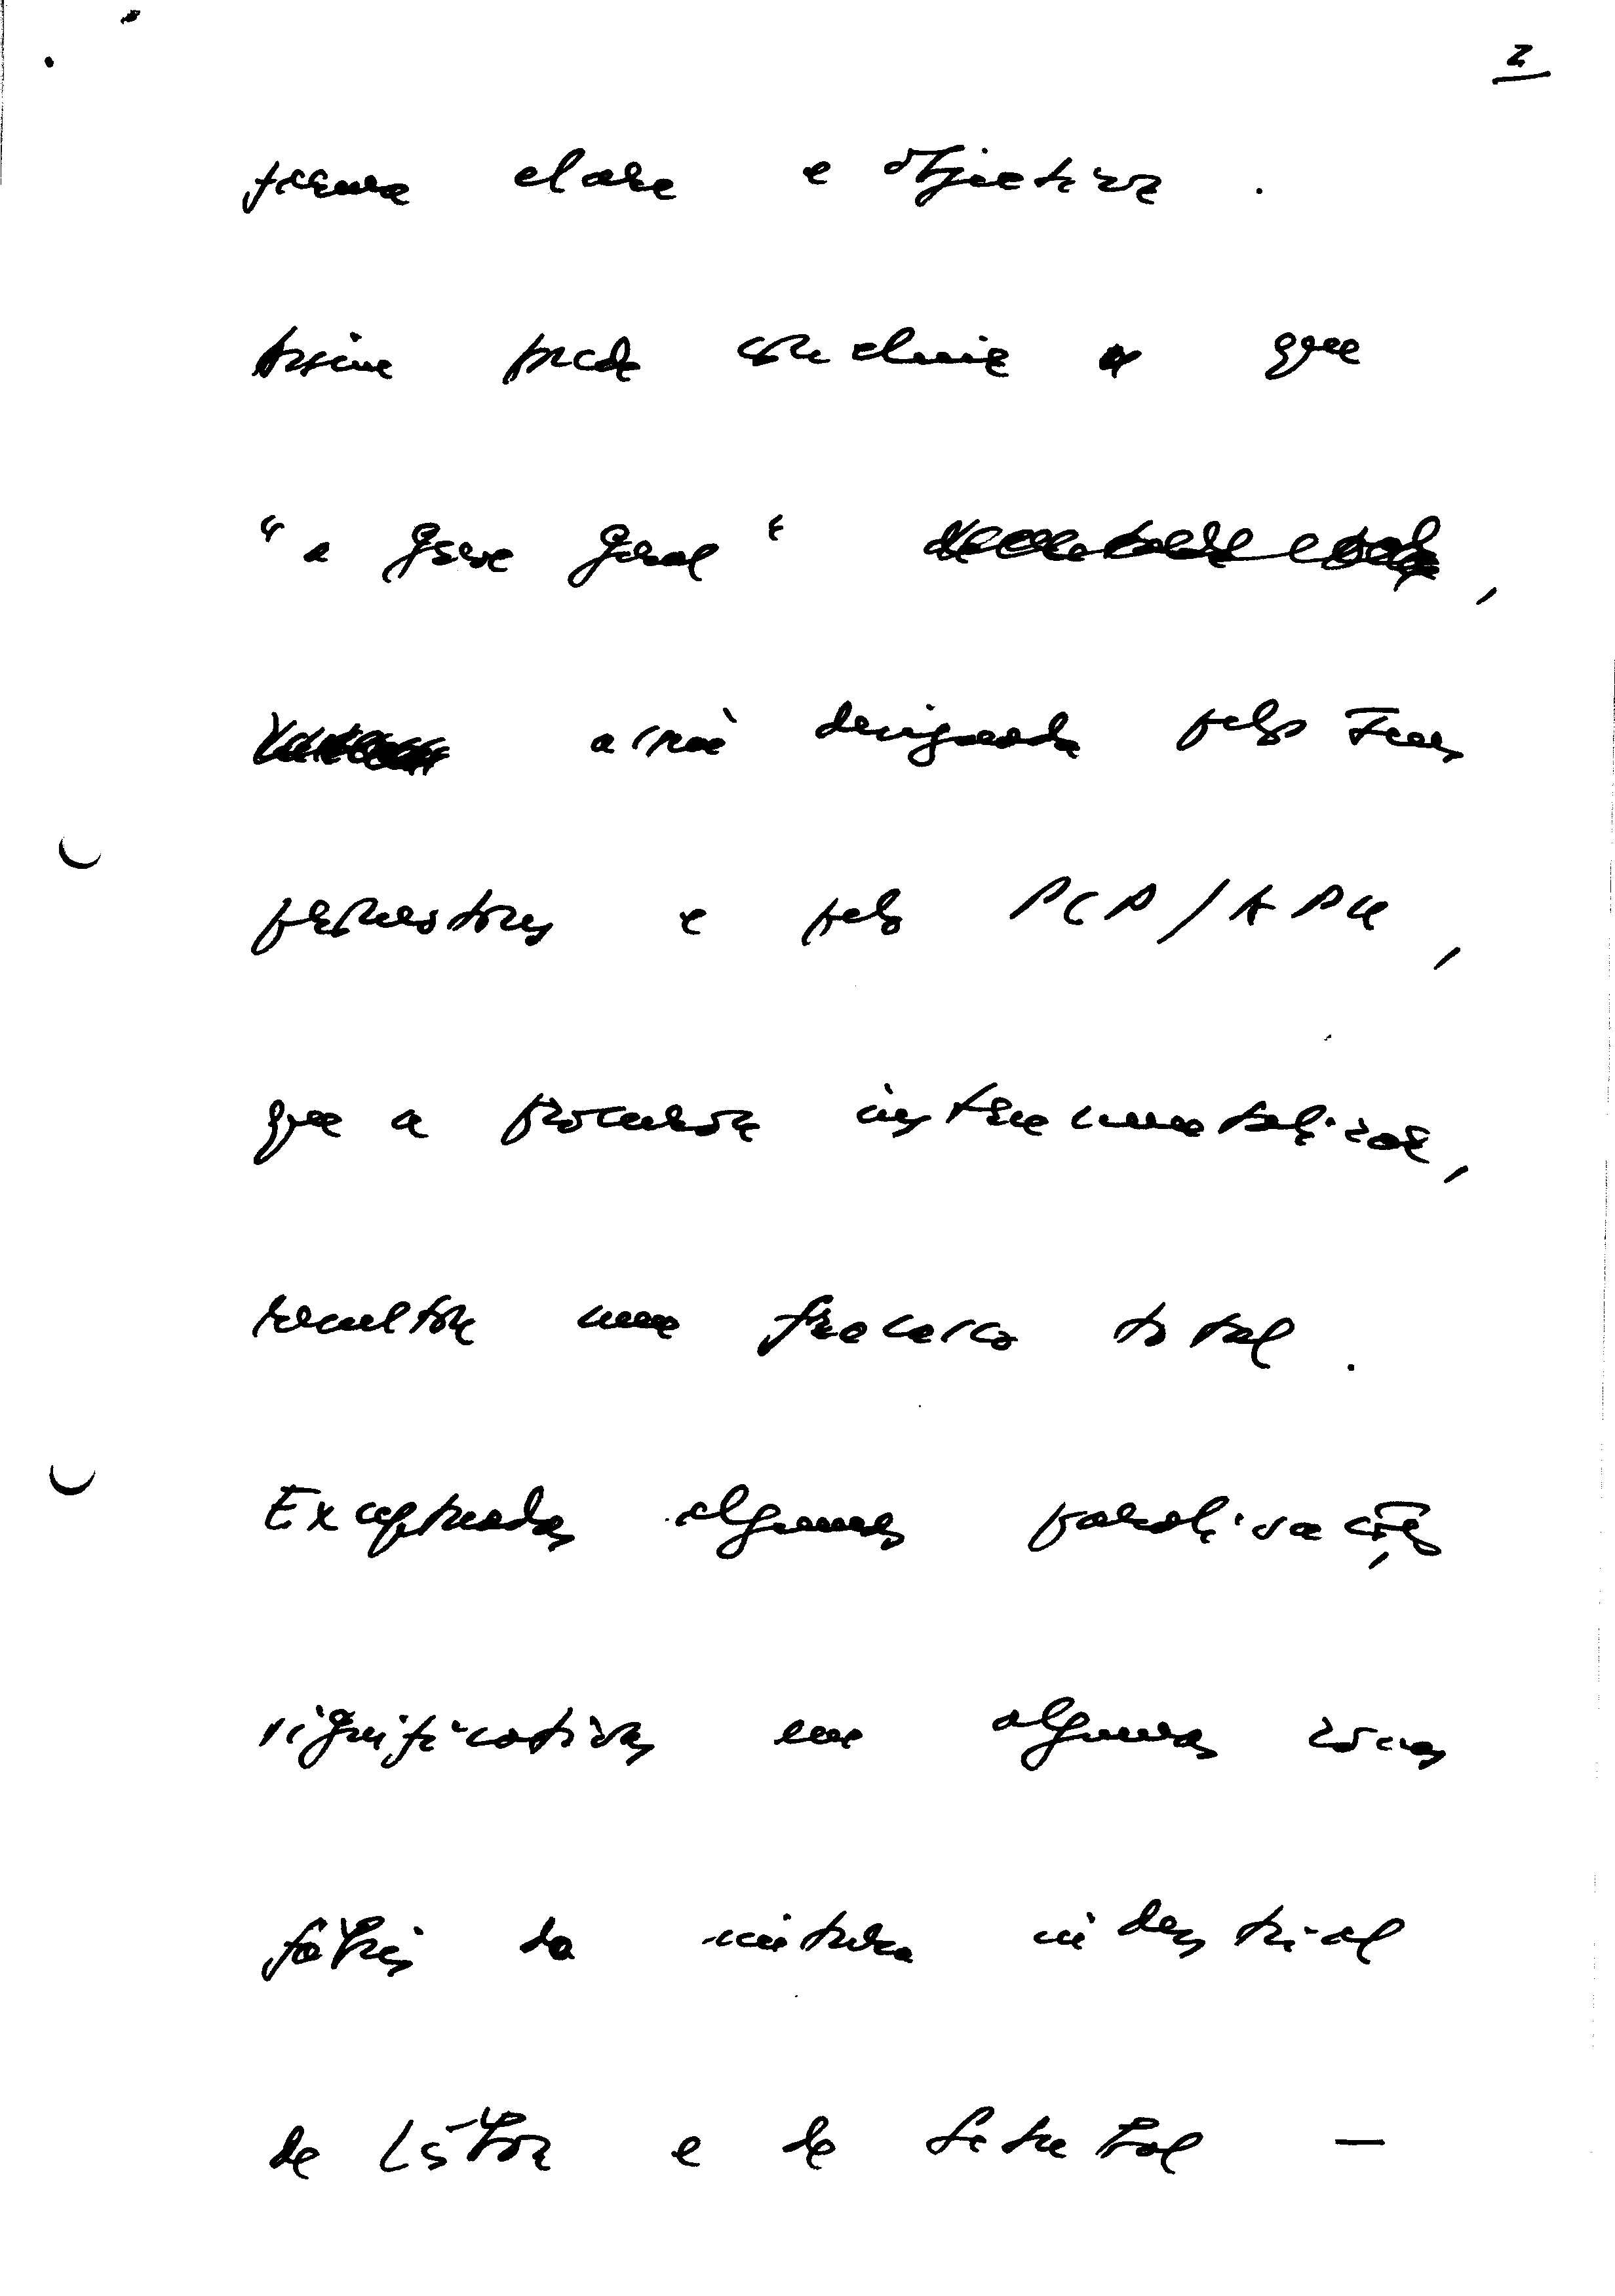 2
forma clara e objectiva.
assim pode concluir-se que
"a greve geral",
assim designada pelos seus
promotores e pelo PCP/APU,
que a procurou instrumentalizar,
resultou num fracasso total.
Exceptuadas algumas paralisações
significativas em algumas zonas
fabris da cintura industrial
de Lisboa e de Setúbal —